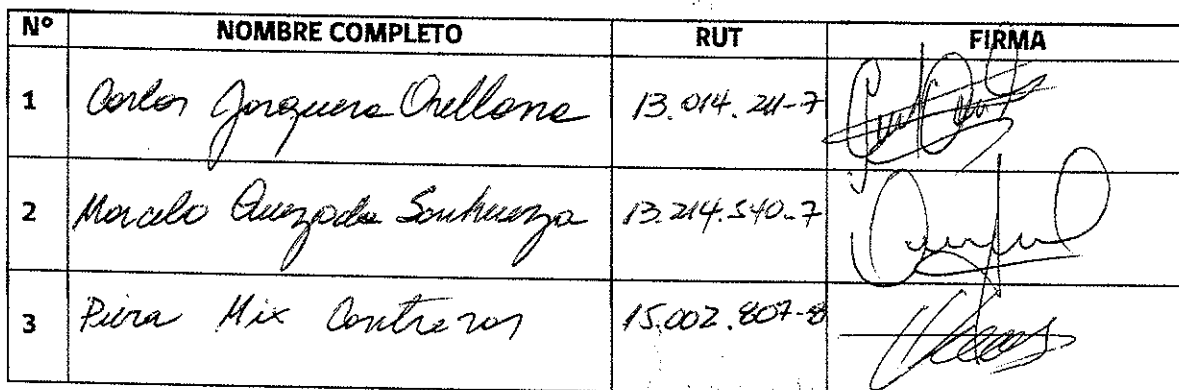 N° NOMBRE COMPLETO RUT FIRMA
1 Carlos Jorquera Orellana 13.014.211-7
2 Marcelo Quezada Sanhueza 13.214.540-7
3 Piera Mix Contreras 15.002.807-8